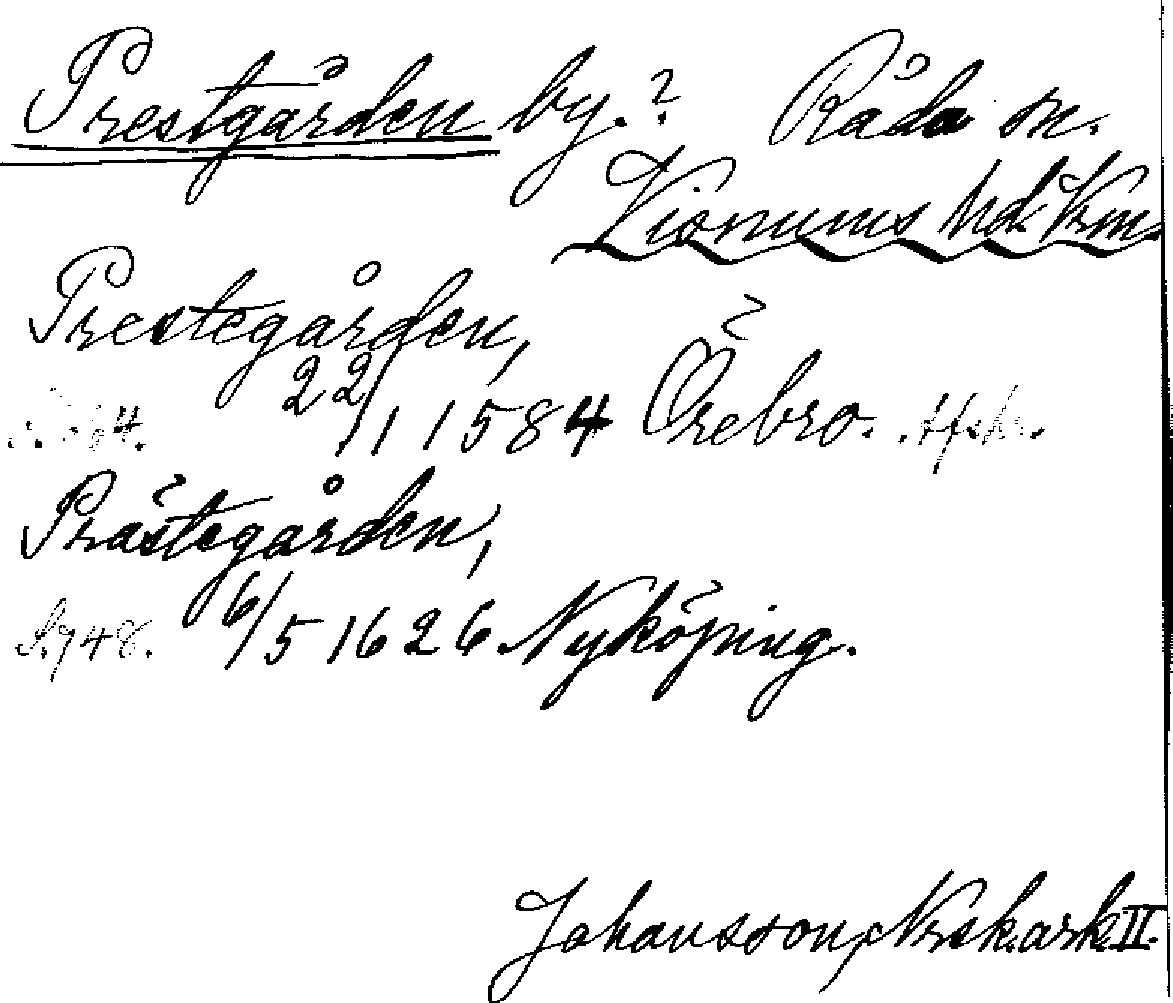 Prestgården by.? Råda sn.
Visnums hd. Vrm.
Prestegården,
22/1 1584 Örebro. Afskr.
Prästegården,
S. 748. 6/5 1626 Nyköping.
Johansson, Nrsk.ark. II.